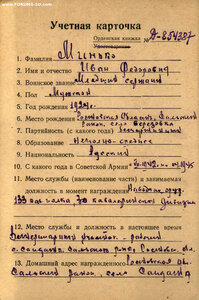 Учетная карточка
Орденская книжка № А-854387
Удостоверение
1. Фамилия Минько
2. Имя и отчество Иван Федорович
3. Воинское звание Младший сержант
4. Пол Мужской
5. Год рождения 1924г.
6. Место рождения Ростовская область, Сальский
район, село Березовка
7. Партийность (с какого года) беспартийный
8. Образование Неполно-среднее
9. Национальность Русский
10. С какого года в Советской Армии
11. Место службы (наименование части) и занимаемая
должность в момент награждения
кавалерийской дивизии
12. Место службы и должность в настоящее время
Ветеринарный
13. Домашний адрес награжденного Ростовская об.
Сальский район, село